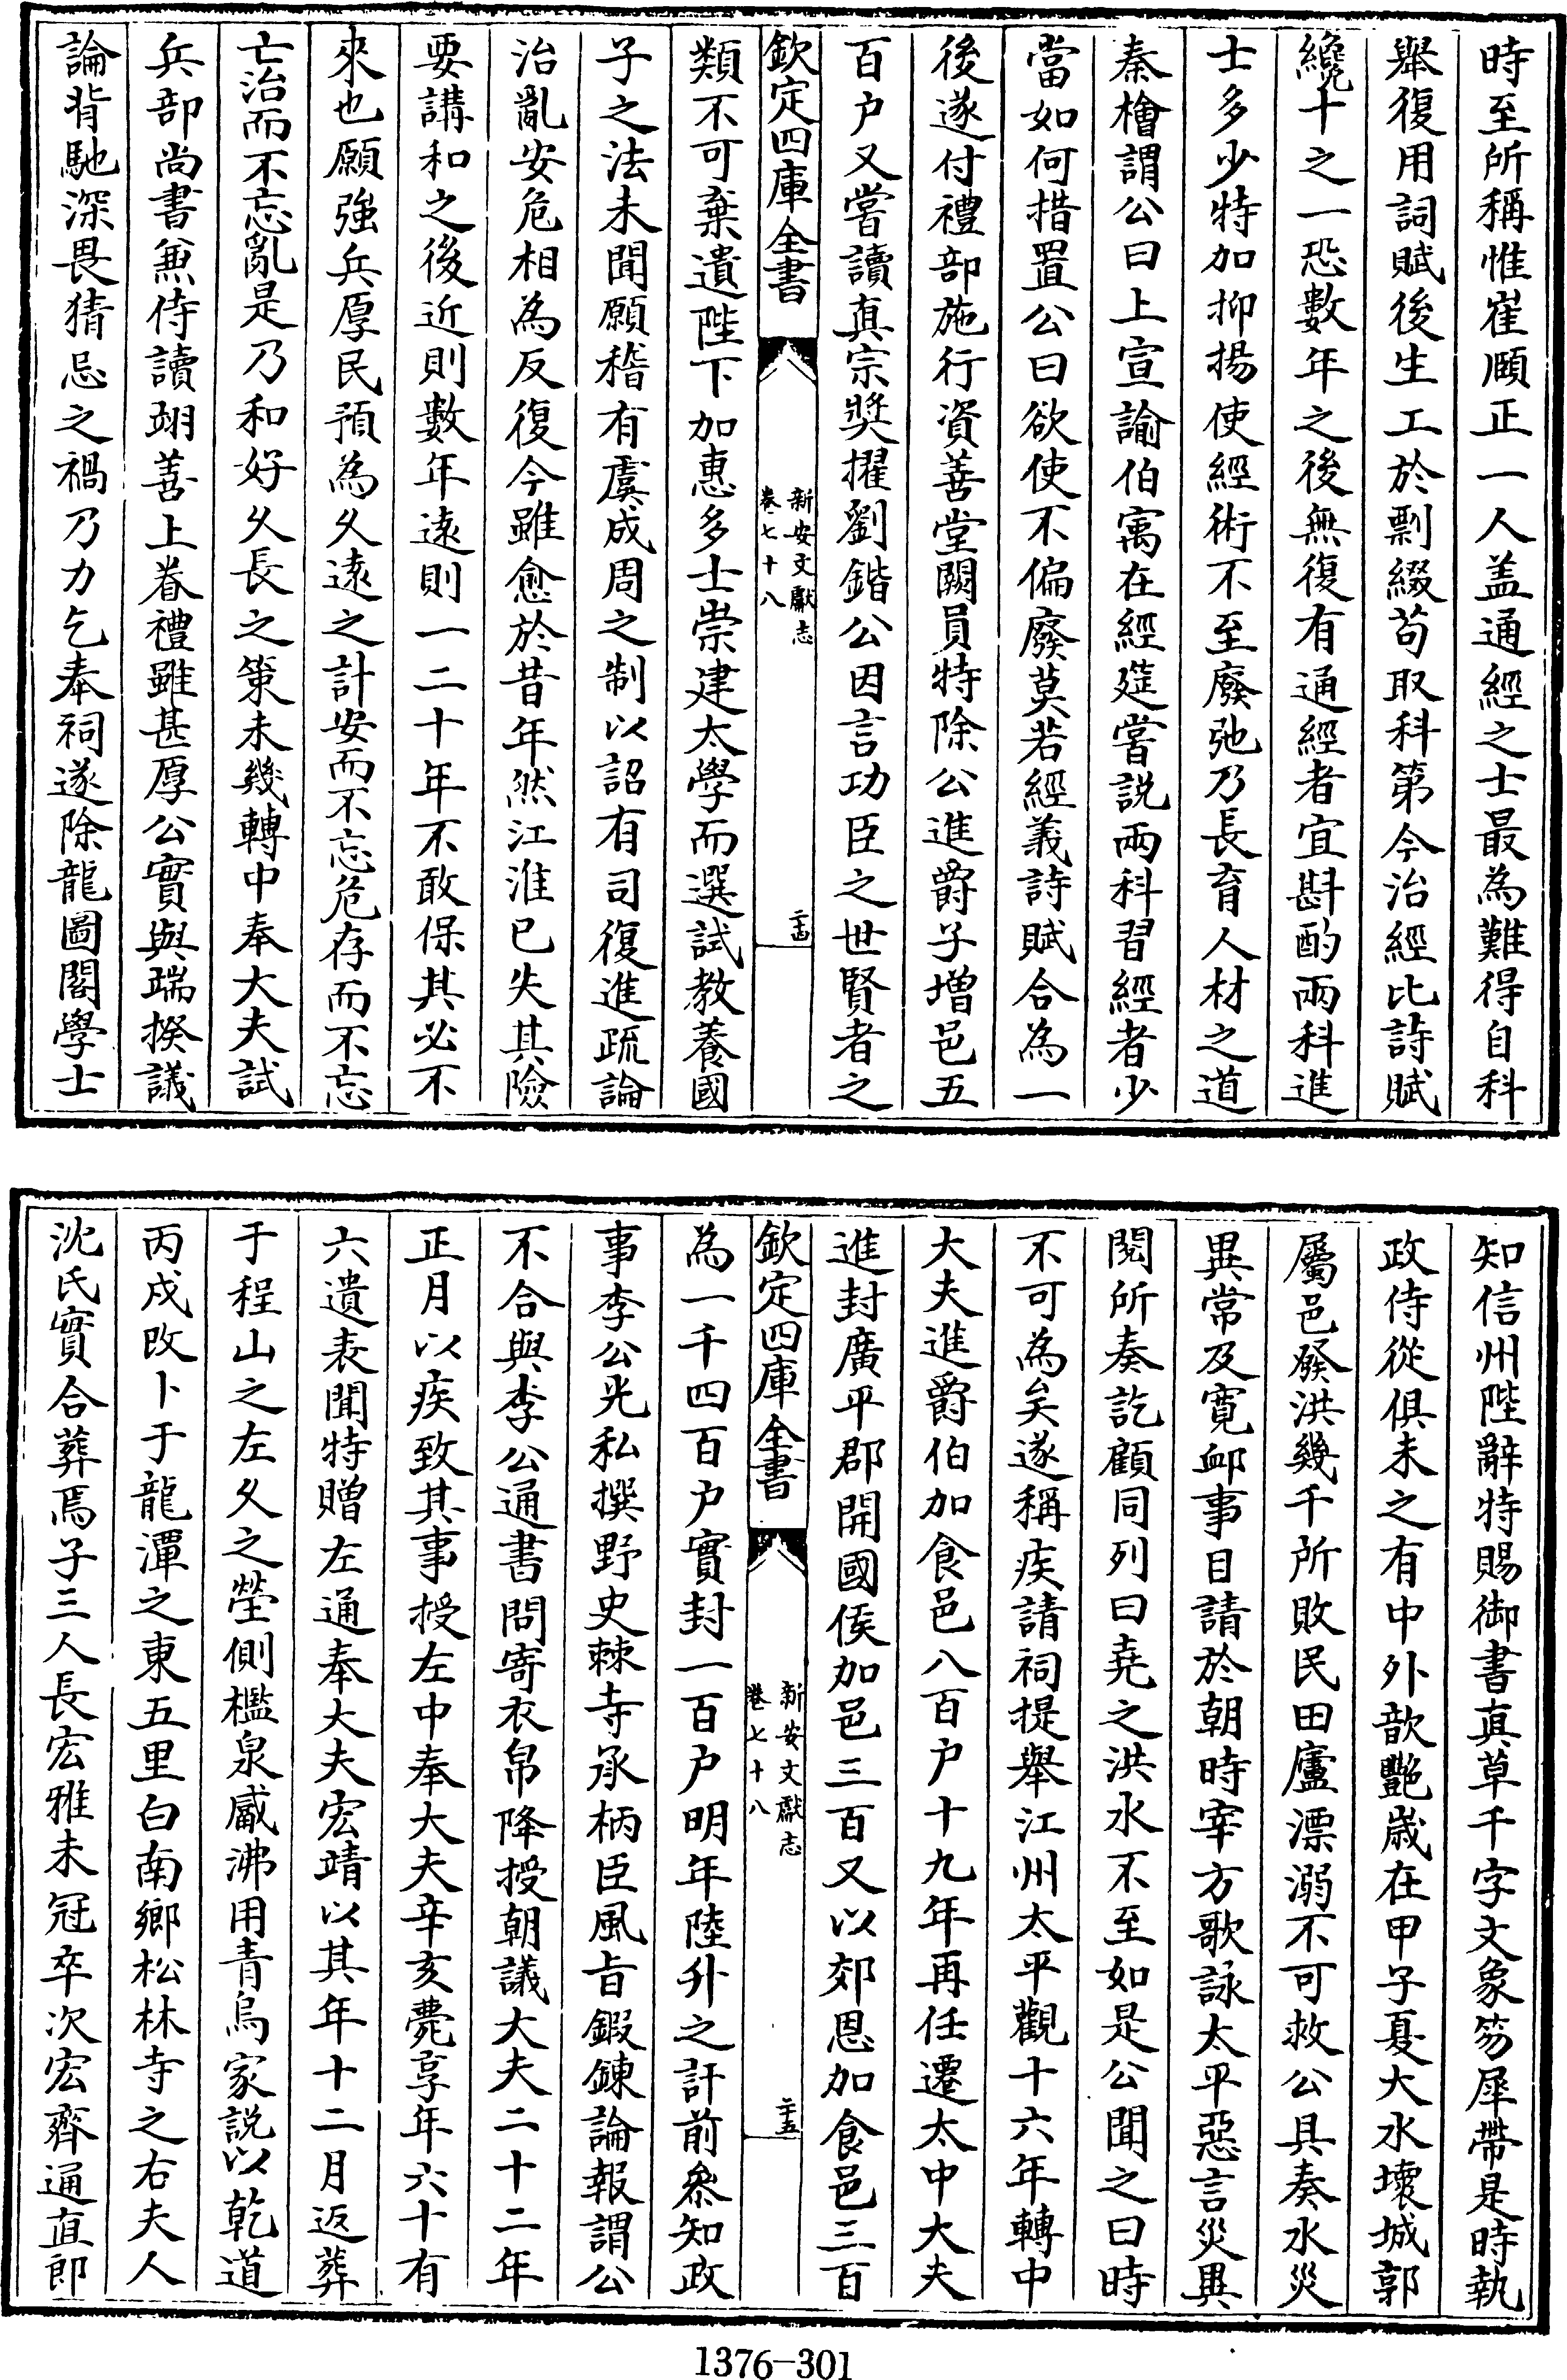 時至所稱惟崔頤正一人盖通經之士最為難得自科
舉復用詞賦後生工於剽綴茍取科第今治經比詩賦
纔十之一恐數年之後無復有通經者宜斟酌兩科進
士多少特加抑揚使經術不至廢弛乃長育人材之道
秦檜謂公曰上宣諭伯寓在經筵嘗説兩科習經者少
當如何措置公曰欲使不偏廢莫若經義詩賦合為一
後遂付禮部施行資善堂闕員特除公進爵子增邑五
百户又嘗讀真宗奬擢劉鍇公因言功臣之世賢者之
欽定四庫全書
新安文獻志
卷七十八
二十四
類不可棄遺陛下加惠多士崇建太學而選試教養國
子之法未聞願稽有虞成周之制以詔有司復進疏論
治亂安危相為反復今雖愈於昔年然江淮已失其險
要講和之後近則數年逺則一二十年不敢保其必不
來也願強兵厚民預為久逺之計安而不忘危存而不忘
亡治而不忘亂是乃和好久長之策未幾轉中奉大夫試
兵部尚書兼侍讀翊善上眷禮雖甚厚公實與端揆議
論背馳深畏猜忌之禍乃力乞奉祠遂除龍圖閣學士
知信州陛辭特賜御書真草千字文象笏犀帶是時執
政侍從俱未之有中外歆艶嵗在甲子夏大水壞城郭
屬邑發洪幾千所敗民田廬漂溺不可救公具奏水災
異常及寛卹事目請於朝時宰方歌詠太平惡言災異
閲所奏訖顧同列曰堯之洪水不至如是公聞之曰時
不可為矣遂稱疾請祠提舉江州太平觀十六年轉中
大夫進爵伯加食邑八百户十九年再任遷太中大夫
進封廣平郡開國侯加邑三百又以郊恩加食邑三百
欽定四庫全書
新安文獻志
卷七十八
二十五
為一千四百户實封一百户明年陸升之訐前叅知政
事李公光私撰野史棘寺承柄臣風旨鍜鍊論報謂公
不合與李公通書問寄衣帛降授朝議大夫二十二年
正月以疾致其事授左中奉大夫辛亥薨享年六十有
六遺表聞特贈左通奉大夫宏靖以其年十二月返葬
于程山之左久之塋側檻泉觱沸用青烏家説以乾道
丙戌改卜于龍潭之東五里白南鄉松林寺之右夫人
沈氏實合葬焉子三人長宏雅未冠卒次宏齊通直郎
1376-301